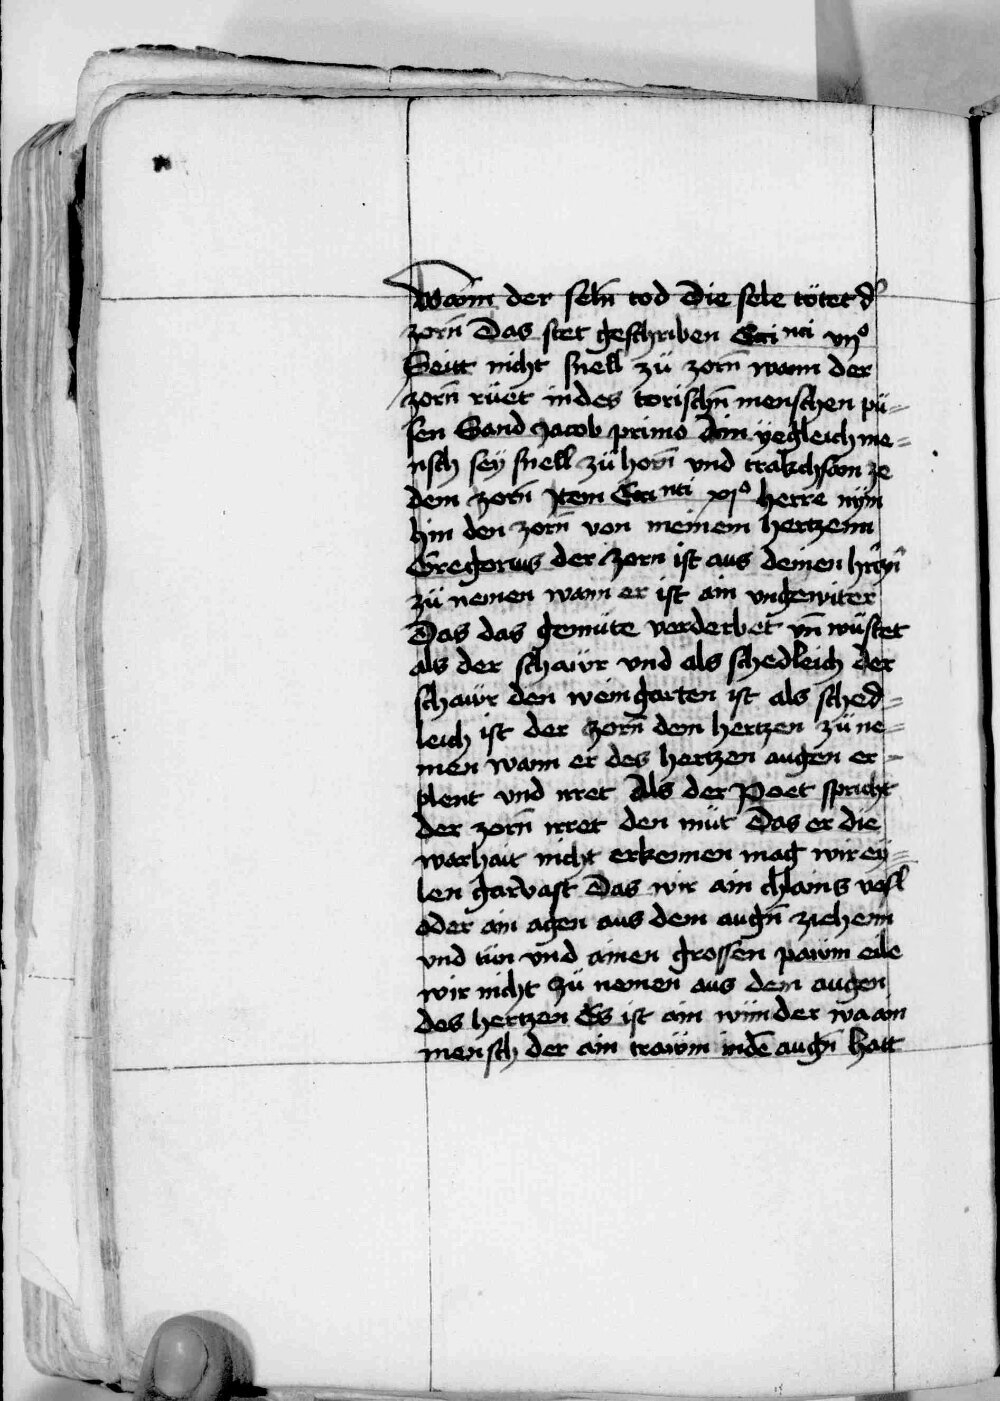 Wann der seln̄ tod Die sele tötet d̾
zorn̄ Das stet geschriben Ecc̄i nti vijo
Seitt nicht snell zü zorn̄ wann der
zorn̄ rüet in des torischn̄ menschen pü=
sen Sand Jacob primo Ain yegleich me=
nsch sey snell zü horn̄ vnd trakchsam ze
dem zorn̄ Jtem Ecc̄i nti xjo herre nym
hin den zorn̄ von meinem hertzenn
Gregorius der zorn ist aus deinen
zü nemen wann er ist ain vngewiter
Das das gemüte verderbet vn̄ wüstet
als der schawr vnd als schedleich der
schawr den weingarten ist als sched=
leich ist der zorn̄ dem hertzen zü ne=
men wann er des hertzen augen er=
plent vnd irret Als der Poet spricht
der zorn̄ irret den müt Das er die
warhait nicht erkennen mag wir ey=
len garvast Das wir ain chlains
oder ain agen aus dem augn̄ ziehenn
vnd tün vnd ainen grossen pawm eile
wir nicht zü nemen aus dem augen
des hertzen Es ist ain wunder wa ain
mensch der ain trawm inde̅ augn̄ hatt